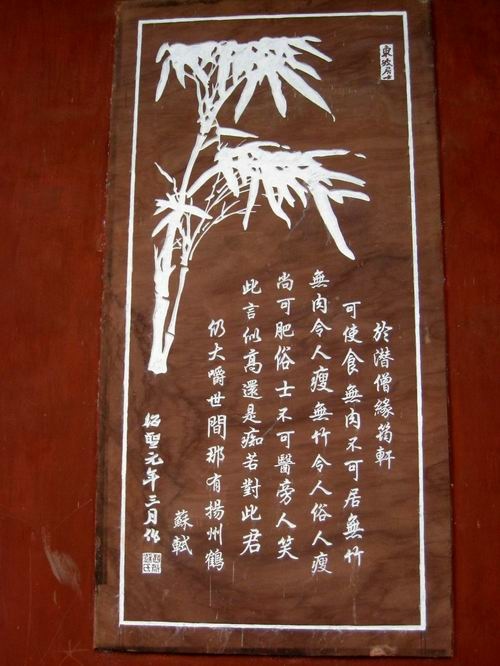 東坡居士
於潛僧緣筠軒
可使食無肉不可居無竹
無肉令人瘦無竹令人俗人瘦
尚可肥俗士不可醫旁人笑
此言似高還是痴若對此君
仍大嚼世間那有揚州鶴
蘇軾
紹聖元年三月作